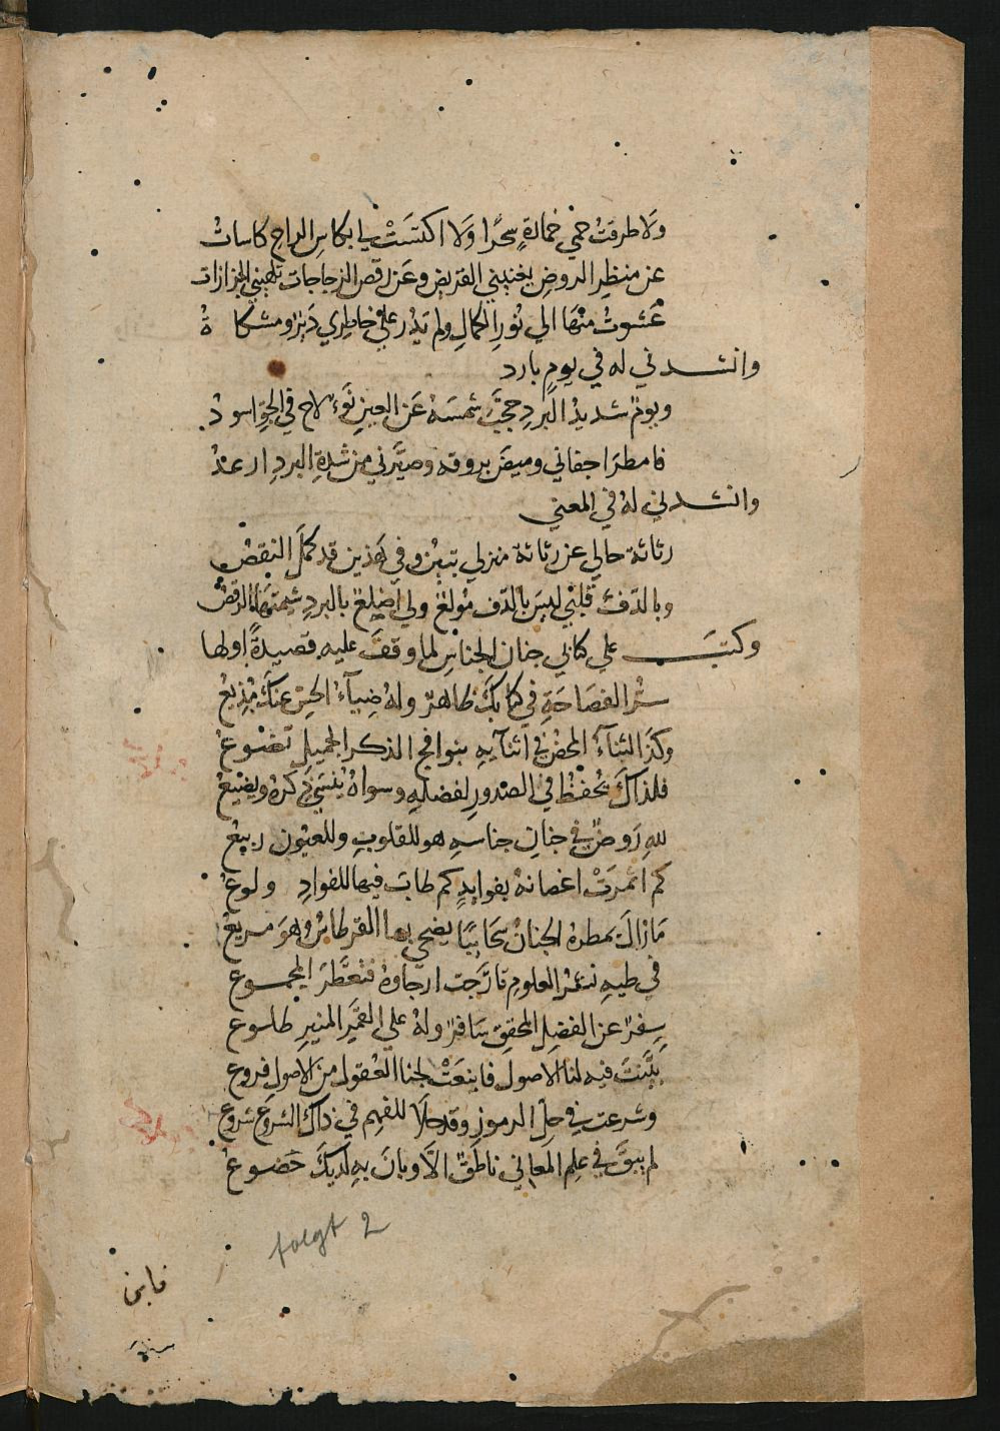 ولا طرقت حمي خمارة سحرا ولا اكتست لي بكاس الراح كاسات
عن منظر الروض يغنيني القريض وعن رقص الزجاجات تلهيني الجزازات
عشوت منها الي نور الكمال ولم يدر علي خاطري دير ومشكاة
وانشدني له في يوم بارد
ويوم شديد البرد حجب شمسه عن العين نوء لاح في الجو اسود
فامطر اجفاني وميض بروقه وصيرني من شدة البرد ارعد
وانشدني له في المعني
رثاثة حالي عن رثاثة منزلي تبين وفي هذين قد كمل النقص
وبالدفء قلبي ليس بالدف مولع ولي اضلع بالبرد شيمتها الرقص
وكتب علي كتابي جنان الجناس لما وقف عليه قصيدة اولها
سر الفصاحة في كتابك ظاهر وله ضياء الحسن عنك يذيع
وكذا الثناء المحض في اثنآيه بنوافح الذكر الجميل تضوع
فلذاك يحفظ في الصدور لفضله وسواه ينسي ذكره ويضيع
لله روض في جنان جناسه هو للقلوب وللعيون ربيع
كم اثمرت اغصانه بفوايد كم طاب فيها للفواد ولوع
مازال يمطره الجنان سحايبا يضحي بها القرطاس وهو مريع
في طيه نشر العلوم تارجت ارجاوه فتعطر المجموع
سفر عن الفضل المحقق سافر وله علي القمر المنير طلوع
بينت فيه لنا الاصول فاينعت لجنا العقول من الاصول فروع
وشرعت في حل الرموز وقد حلا للفهم في ذاك الشروع شروع
لم يبق في علم المعاني ناطق الا وبان به لديك خضوع
folgt 2